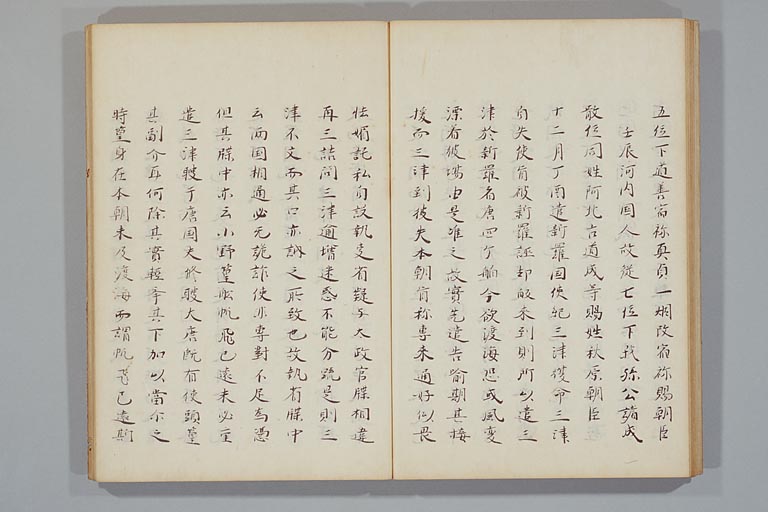 五位下道善宿祢真貞一烟改宿祢賜朝臣
壬辰河内国人故従七位下我孫公諸成
散位同姓阿比古道成等賜姓秋原朝臣
十二月丁酉遣新羅国使紀三津復命三津
自失使旨被新羅誣却皈来到則所以遣三
津於新羅者唐四ケ舶今欲渡海恐或風変
漂着彼境由是准之故實先遣告喻期其接
援而三津到彼失本朝旨称専来通好似畏
怯媚託私自設執支有疑与太政官牒相違
再三詰問三津逾増迷惑不能分疏是則三
津不文而其口亦訥之所致也故執省牒中
云两国相通必无詭詐使非専對不足為憑
但其牒中亦云小野篁舩帆飛已遠未必重
遣三津聘于唐国夫修聘大唐既有使頭篁
其副介耳何除其貴輕挙其下加以當尓之
時篁身在本朝未及渡海而謂帆飛已遠斯